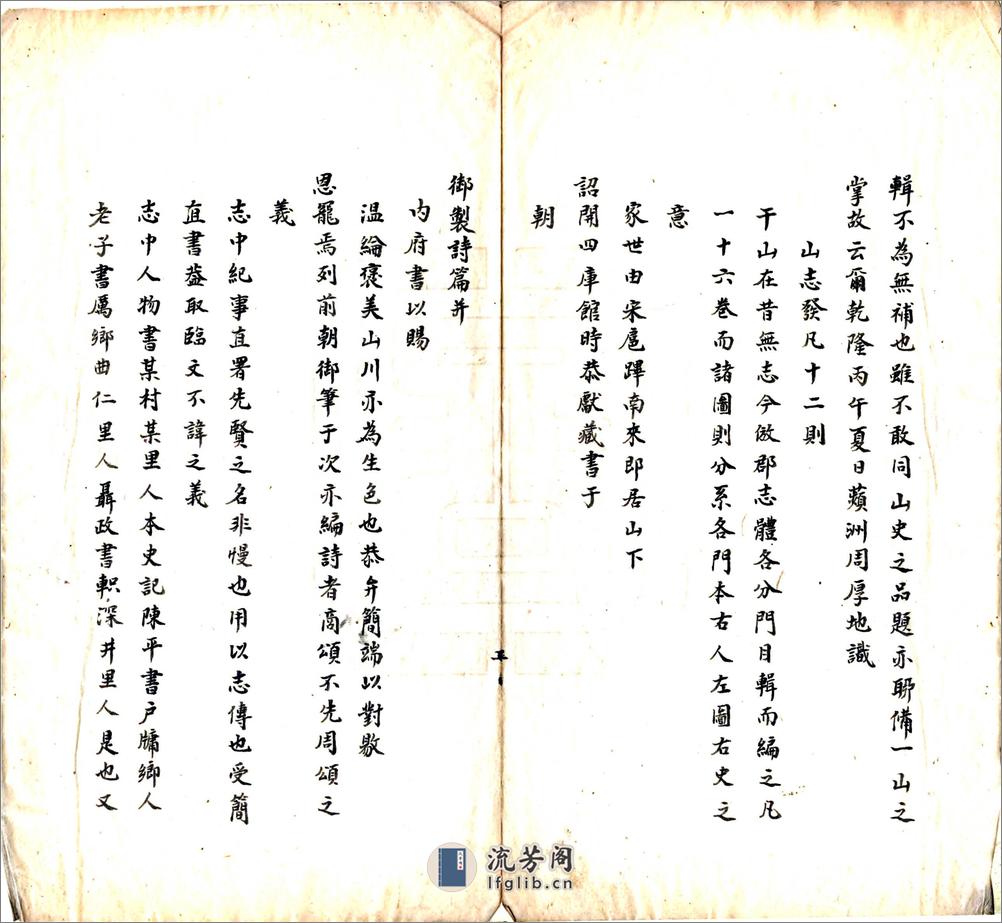 輯不為無補也雖不敢同山史之品題亦聊備一山之
掌故云爾乾隆丙午夏日蘋洲周厚地識
山志發凡十二則
干山在昔無志今倣郡志體各分門目輯而編之凡
一十六卷而諸圖則分系各門本古人左圖右史之
意
家世由宋扈蹕南來即居山下
朝
詔開四庫館時恭獻藏書于
五
御製詩篇并
內府書以賜
溫綸褒美山川亦為生色也恭弁簡端以對敭
恩寵焉列前朝御筆于次亦編詩者商頌不先周頌之
義
志中紀事直署先賢之名非慢也用以志傳也受簡
直書蓋取臨文不諱之義
志中人物書某村某里人本史記陳平書戶牖鄉人
老子書厲鄉曲仁里人聶政書軹深井里人是也又
流芳阁
lfglib.cn